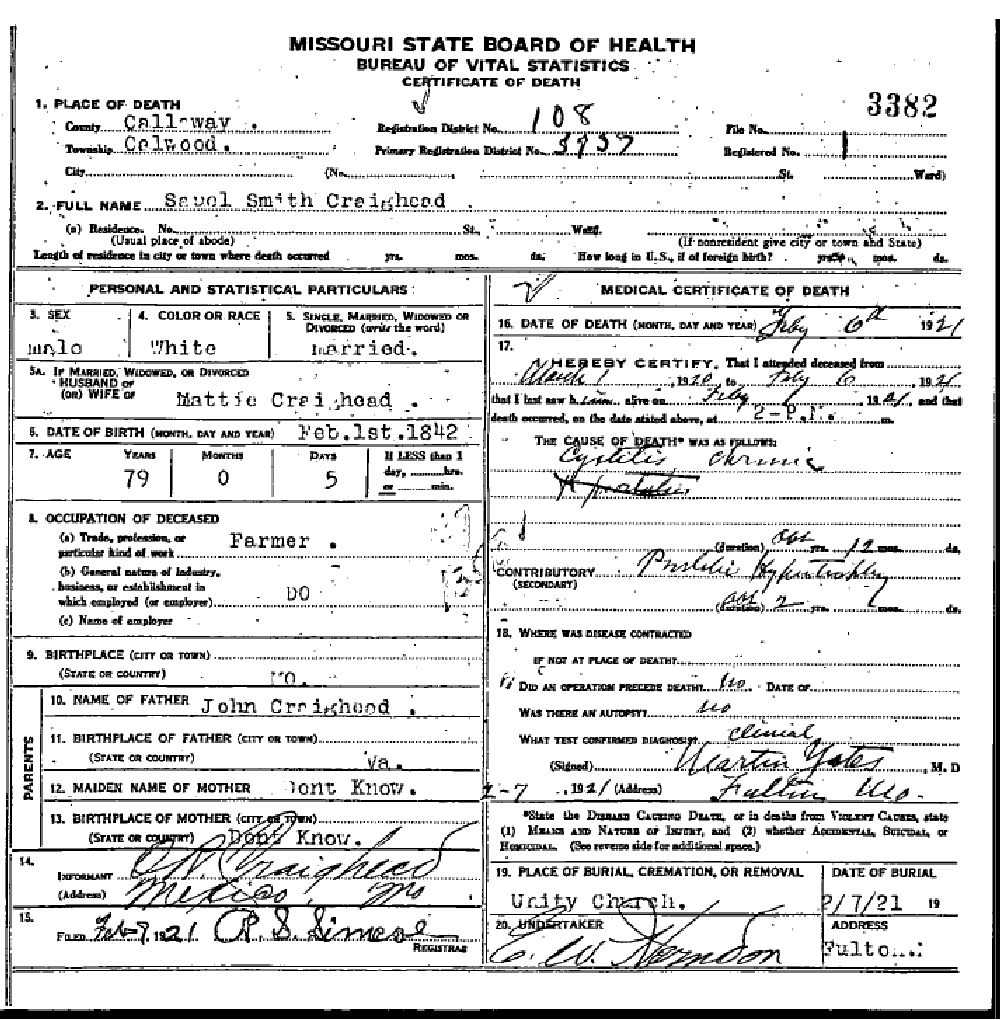 MISSOURI STATE BOARD OF HEALTH
BUREAU OF VITAL STATISTICS
CERTIFICATE OF DEATH
3382
1. PLACE OF DEATH
County Callaway . Registration District No. 108 File No.
Township Calwood. Primary Registration District No. Registered No. 1
City (No. St. Ward)
2. FULL NAME Smith Creighead
(a) Residence. No. St., Ward.
(Usual place of abode) (If nonresident give city or town and State)
Length of residence in city or town where death occurred yrs. mos. ds. How long in U.S., if of foreign birth? yrs. mos. ds.
PERSONAL AND STATISTICAL PARTICULARS
3. SEX 4. COLOR OR RACE 5. SINGLE, MARRIED, WIDOWED OR DIVORCED (write the word)
Male White Married.
5A. IF MARRIED, WIDOWED, OR DIVORCED
HUSBAND OF
(OR) WIFE OF Mattie Creighead .
6. DATE OF BIRTH (MONTH, DAY AND YEAR) Feb.1st.1842
7. AGE YEARS MONTHS DAYS If LESS than 1
day, hrs.
79 0 5 or min.
8. OCCUPATION OF DECEASED
(a) Trade, profession, or
particular kind of work Farmer .
(b) General nature of Industry,
business, or establishment in
which employed (or employer) DO
(c) Name of employer
9. BIRTHPLACE (CITY OR TOWN)
(STATE OR COUNTRY) MO.
PARENTS
10. NAME OF FATHER John Creighead .
11. BIRTHPLACE OF FATHER (CITY OR TOWN)
(STATE OR COUNTRY) Va.
12. MAIDEN NAME OF MOTHER Dont Know.
13. BIRTHPLACE OF MOTHER (CITY OR TOWN)
(STATE OR COUNTRY) Dont Know.
14.
INFORMANT Craighead
(Address) Mexico, Mo
15.
FILED Feb 7, 1921 R. S. REGISTRAR
MEDICAL CERTIFICATE OF DEATH
16. DATE OF DEATH (MONTH, DAY AND YEAR) Feby 6th 1921
17.
I HEREBY CERTIFY, That I attended deceased from
March 1, 1920, to Feby 6, 1921,
that I last saw him alive on Feby 1, 1921, and that
death occurred, on the date stated above, at 2-P.M. m.
THE CAUSE OF DEATH* WAS AS FOLLOWS:
Cystitis chronic
(duration) yrs. 12 mos. ds.
CONTRIBUTORY Hypertrophy
(SECONDARY)
(duration) 2 yrs. mos. ds.
18. WHERE WAS DISEASE CONTRACTED
IF NOT AT PLACE OF DEATH?
DID AN OPERATION PRECEDE DEATH? No DATE OF
WAS THERE AN AUTOPSY? No
WHAT TEST CONFIRMED DIAGNOSIS? Clinical
(Signed) Martin Yates M. D
2-7, 1921 (Address) Fulton Mo.
*State the DISEASE CAUSING DEATH, or in deaths from VIOLENT CAUSES, state
(1) MEANS AND NATURE OF INJURY, and (2) whether ACCIDENTAL, SUICIDAL, or
HOMICIDAL. (See reverse side for additional space.)
19. PLACE OF BURIAL, CREMATION, OR REMOVAL DATE OF BURIAL
Unity Church. 2/7/21 19
20. UNDERTAKER ADDRESS
C. W. Herndon Fulton.